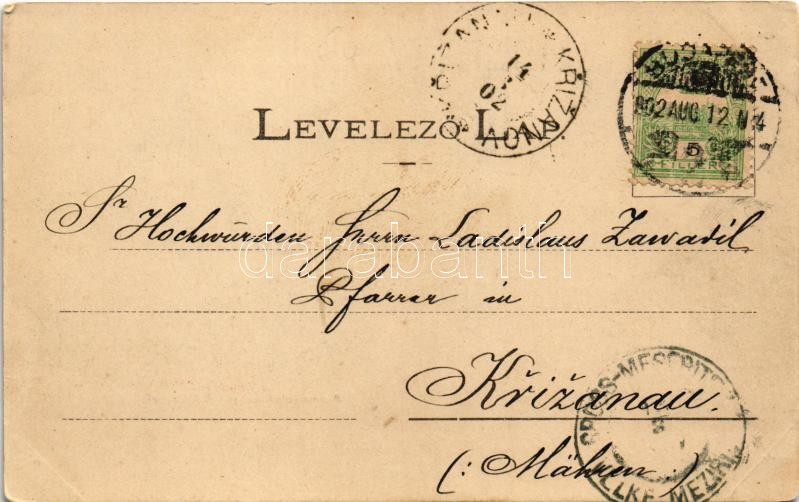 KŘIŽANOV
14
02
902 AUG 12 N4
5
LEVELEZŐ-LAP.
Sr Hochwürden Herrn Ladislaus Zawadil
darabanth
Pfarrer in
Křižanau.
(: Mähren :)
GROSS-MESERITSCH
VELKÉ MEZIŘ